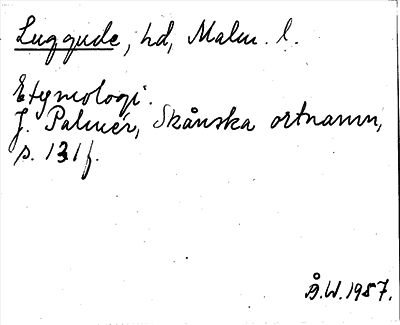 Luggude, hd, Malm. l.
Etymologi.
J. Palmér, Skånska ortnamn,
s. 131f.
Å.W. 1987.